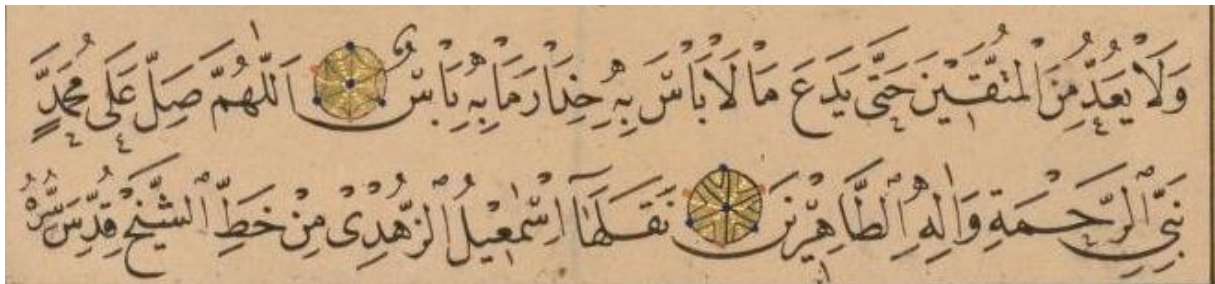 وَلَا يُعَدُّ مِنَ الْمُتَّقِيْنَ حَتّٰى يَدَعَ مَا لَا بَاْسَ بِهِ حِذَارَ مَا بِهِ بَاْسٌ اَللّٰهُمَّ صَلِّ عَلٰى مُحَمَّدٍ
نَبِيِّ الرَّحْمَةِ وَاٰلِهِ الطَّاهِرِيْنَ نَقَلَهَا اِسْمٰعِيْلُ الزُّهْدِىْ مِنْ خَطِّ الشَّيْخِ قُدِّسَ سِرُّهُ